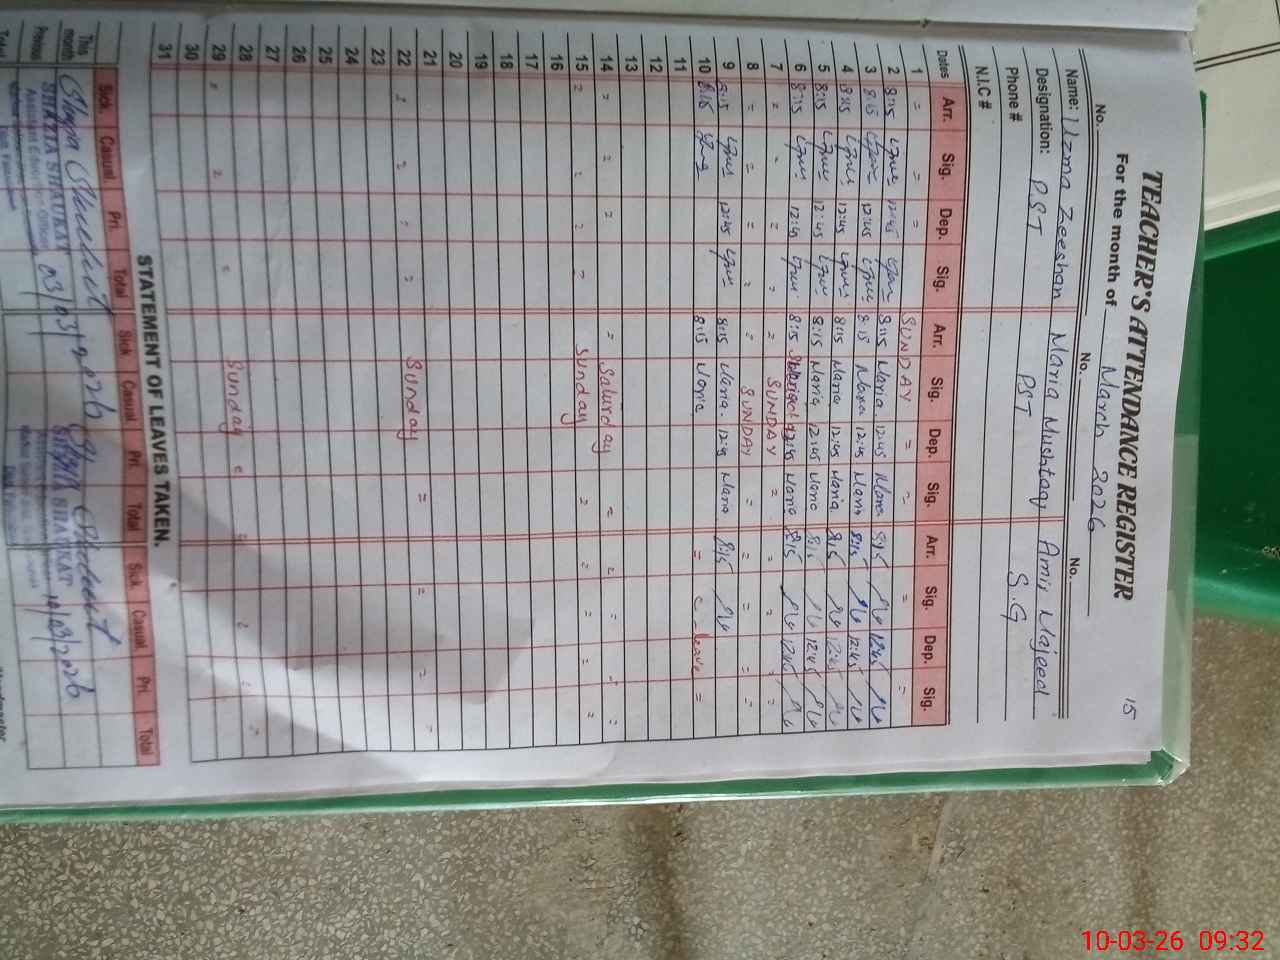 15
TEACHER'S ATTENDANCE REGISTER
For the month of March 2026
No. No. No.
Name: Uzma Zeeshan Maria Mushtaq Amir Majeed
Designation: PST PST S.G
Phone #
N.I.C #
Dates Arr. Sig. Dep. Sig. Arr. Sig. Dep. Sig. Arr. Sig. Dep. Sig.
1 SUNDAY
2 8:15 12:45 8:15 Maria 12:45 Maria 8:15 12:45
3 8:15 12:45 8:15 Maria 12:45 Maria 8:15 12:45
4 8:15 12:45 8:15 Maria 12:45 Maria 8:15 12:45
5 8:15 12:45 8:15 Maria 12:45 Maria 8:15 12:45
6 8:15 12:45 8:15 12:45 Maria 8:15 12:45
7 SUNDAY
8 SUNDAY
9 8:15 12:45 8:15 Maria 12:45 Maria 8:15
10 8:15 8:15 Maria C-leave
11
12
13
14 Saturday
15 Sunday
16
17
18
19
20
21
22 Sunday
23
24
25
26
27
28
29 Sunday
30
31
STATEMENT OF LEAVES TAKEN.
Sick. Casual. Pri. Total Sick. Casual. Pri. Total Sick. Casual. Pri. Total
This month
Previous
SHAZIA SHAUKAT 03/03/2026 SHAUKAT 10/03/2026
Total
10-03-26 09:32